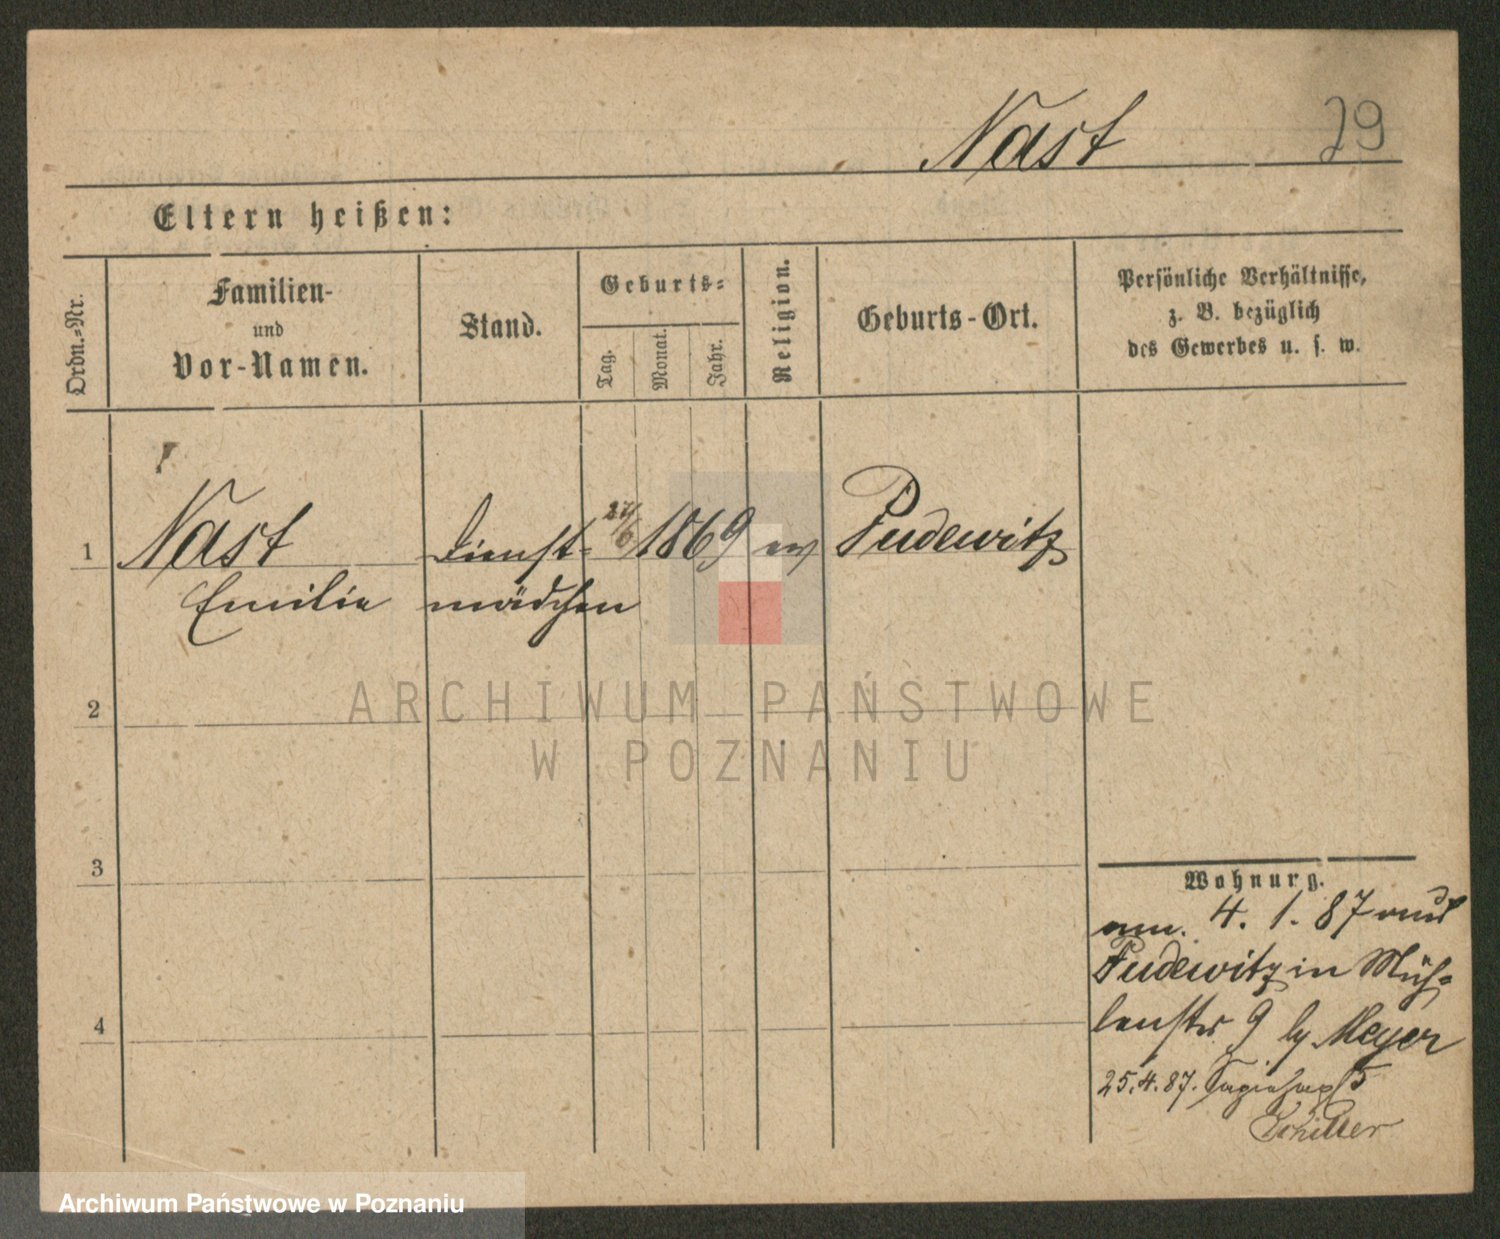 Nast 29
Eltern heißen:
Ordn.-Nr.
Familien-
und
Vor-Namen.
Stand.
Geburts-
Tag.
Monat.
Jahr.
Religion.
Geburts-Ort.
Persönliche Verhältnisse,
z. B. bezüglich
des Gewerbes u. s. w.
1 Nast Dienst- 27/6 1869 ev Pudewitz
Emilie mädchen
2
ARCHIWUM PAŃSTWOWE
W POZNANIU
3
Wohnung.
am. 4. 1. 87 aus
Pudewitz in Müh-
lenstr. 9 by Meyer
4
25.4.87. 5
Schiller
Archiwum Państwowe w Poznaniu